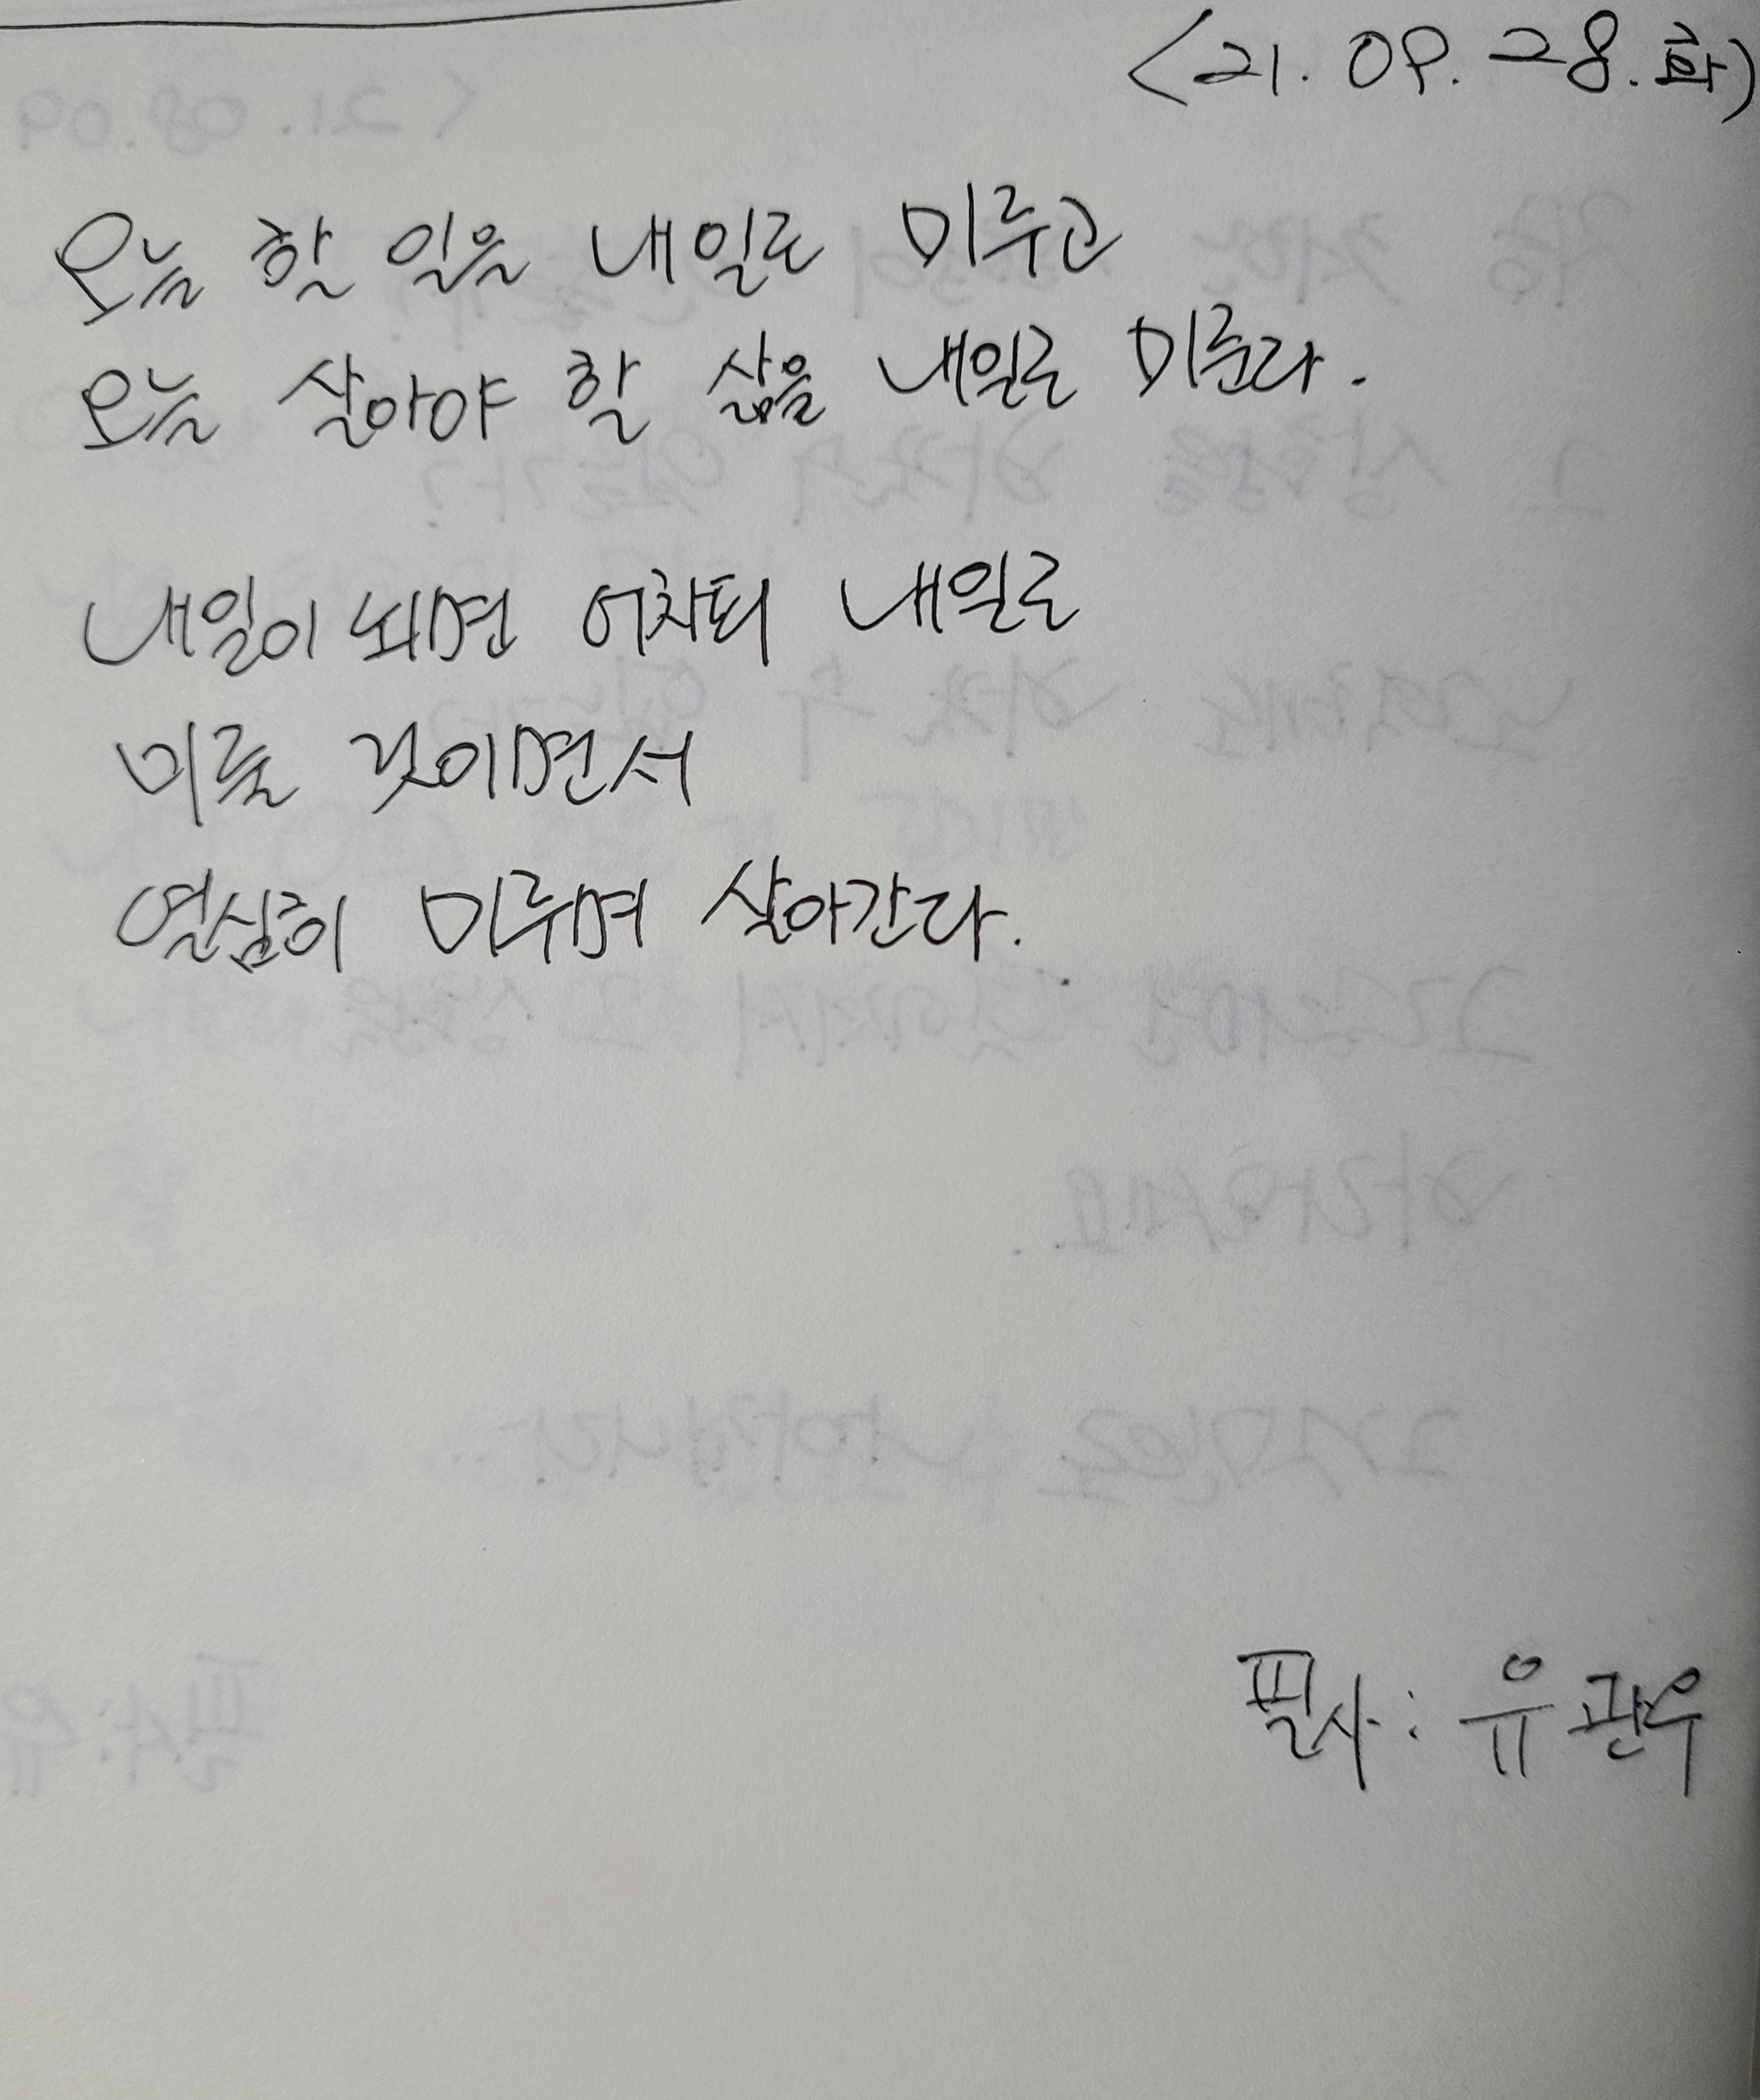 <21. 09. 28. 화)
오늘 할 일을 내일로 미루고
오늘 살아야 할 삶을 내일로 미룬다.
내일이 되면 어차피 내일로
미룰 것이면서
열심히 미루며 살아간다.
필사: 유관우